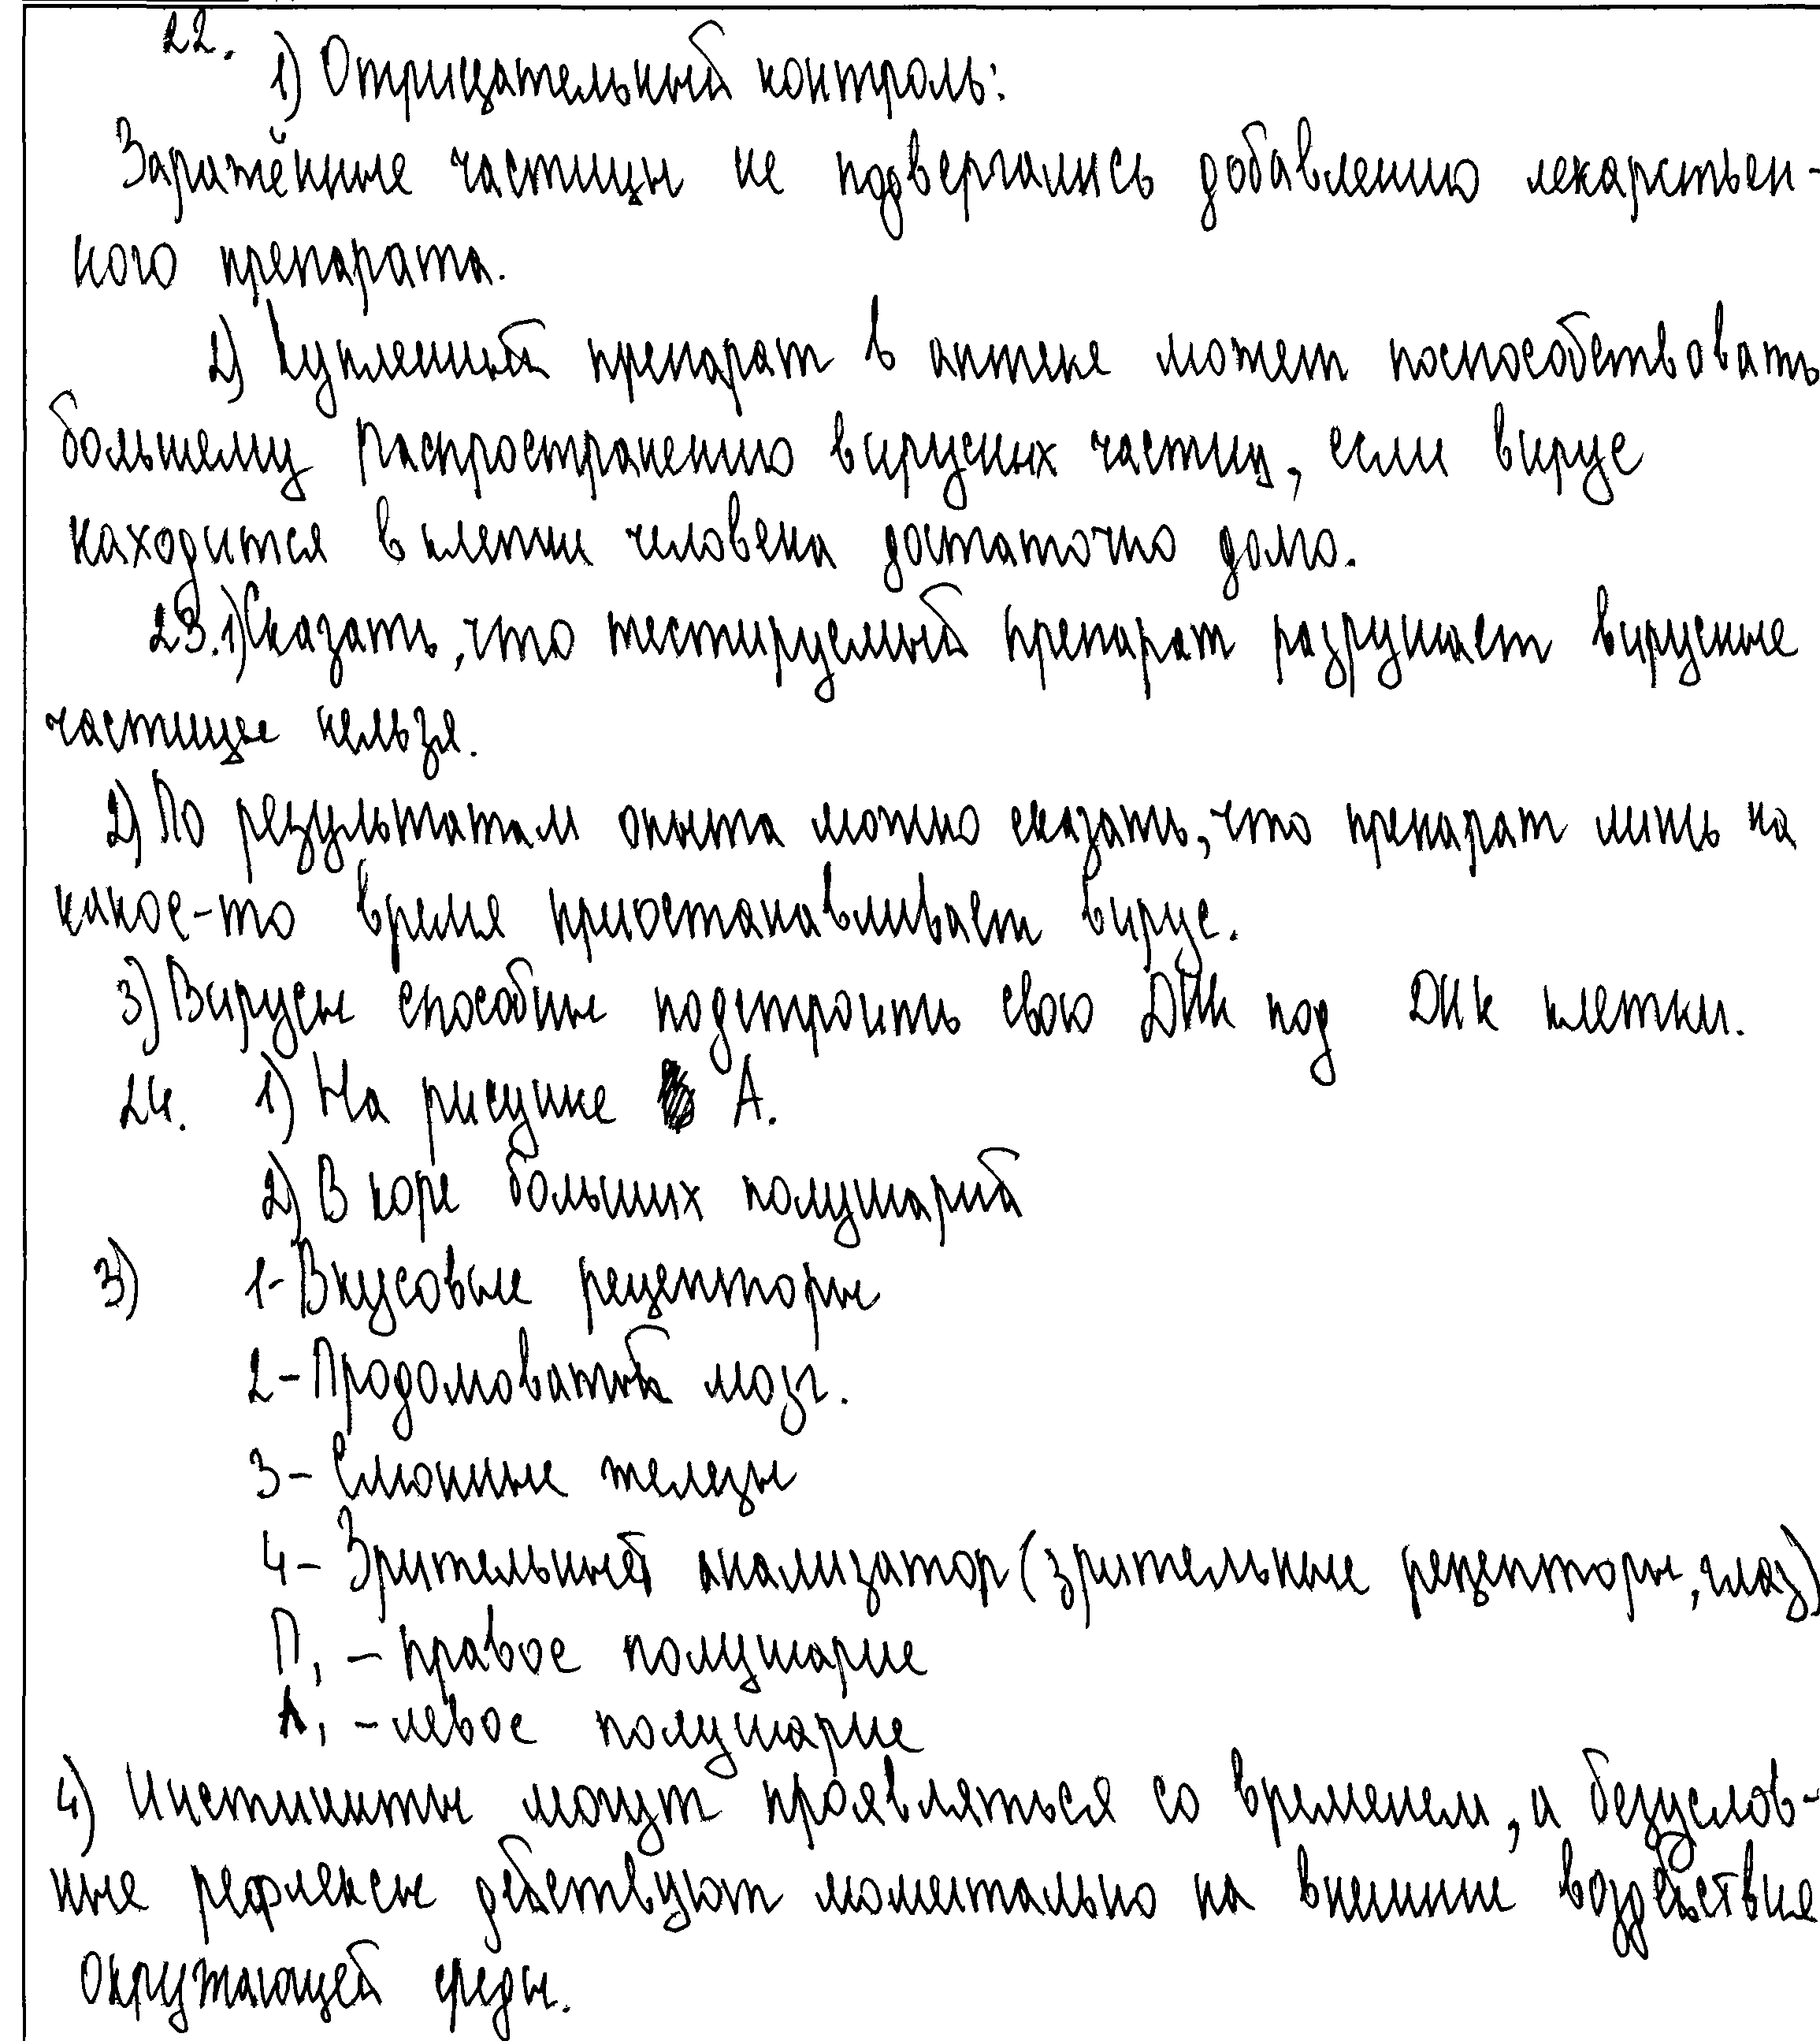 22.
1) Отрицательный контроль:
Заражённые частицы не подвергались добавлению лекарствен-
ного препарата.
2) Купленный препарат в аптеке может поспособствовать
большему распространению вирусных частиц, если вирус
находится в клетки человека достаточно долго.
23. 1) Сказать, что тестируемый препарат разрушает вирусные
частицы нельзя.
2) По результатам опыта можно сказать, что препарат лишь на
какое-то время приостанавливает вирус.
3) Вирусы способны подстроить свою ДНК под ДНК клетки.
24. 1) На рисунке А.
2) В коре больших полушарий
3) 1- Вкусовые рецепторы
2- Продолговатый мозг.
3- Слюнные железы
4- Зрительный анализатор (зрительные рецепторы, глаз)
П, - правое полушарие
Л, - левое полушарие
4) Инстинкты могут проявляться со временем, а безуслов-
ные рефлексы действуют моментально на внешние воздействия
окружающей среды.